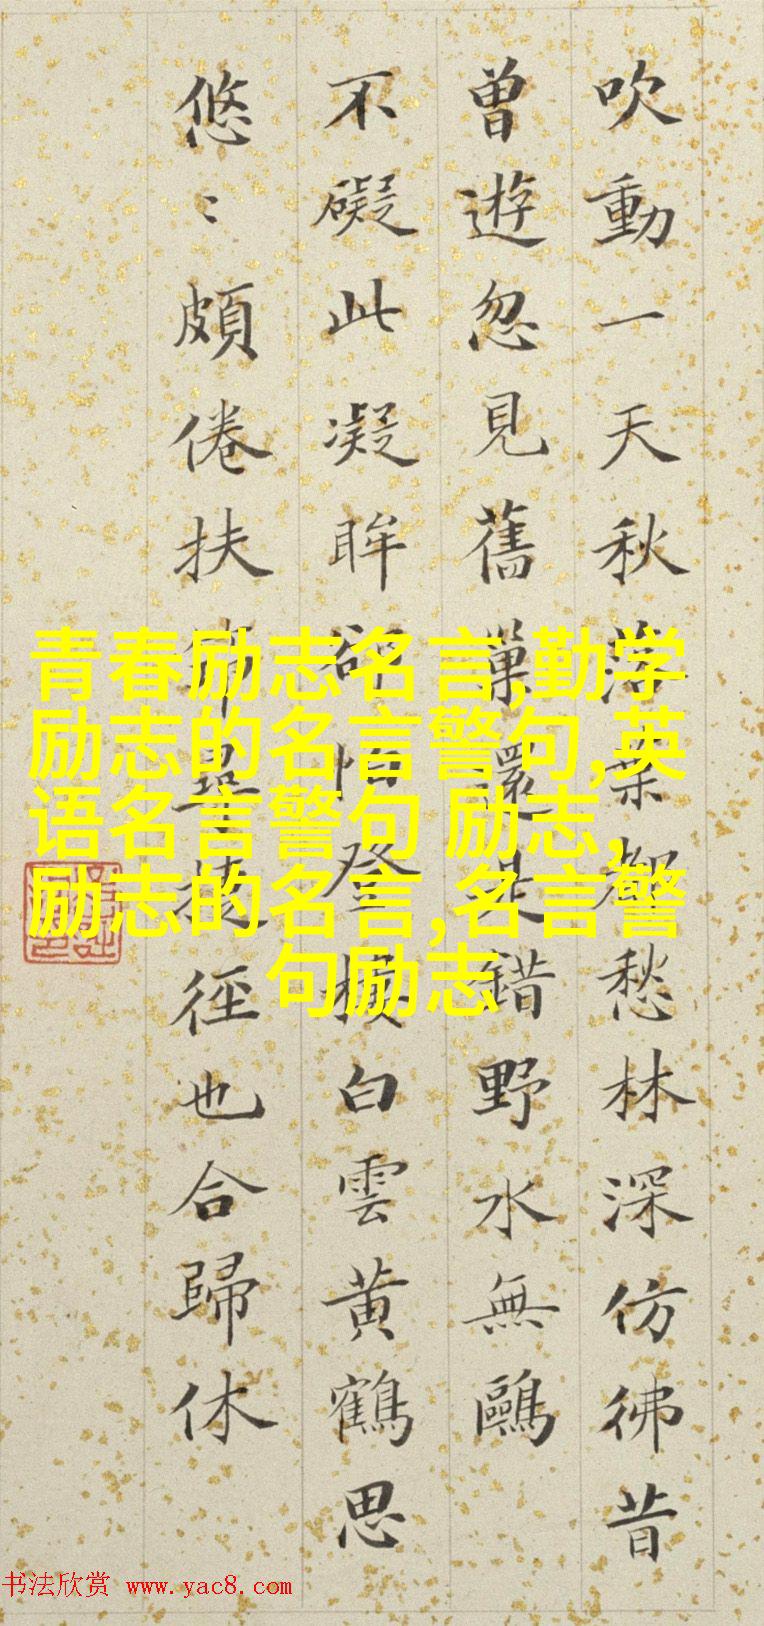 吹動一天秋落葉都愁林深仿彿昔
曾遊忽見舊巢還是錯野水無鷗
不礙此凝眸卻怕登樓白雲黃鶴思
悠〻頗倦扶筇尋捷徑也合歸休
青春励志名言,勤学
励志的名言警句,英
语名言警句 励志,
励志的名言,名言警
句励志
书法欣赏 www.yac8.com